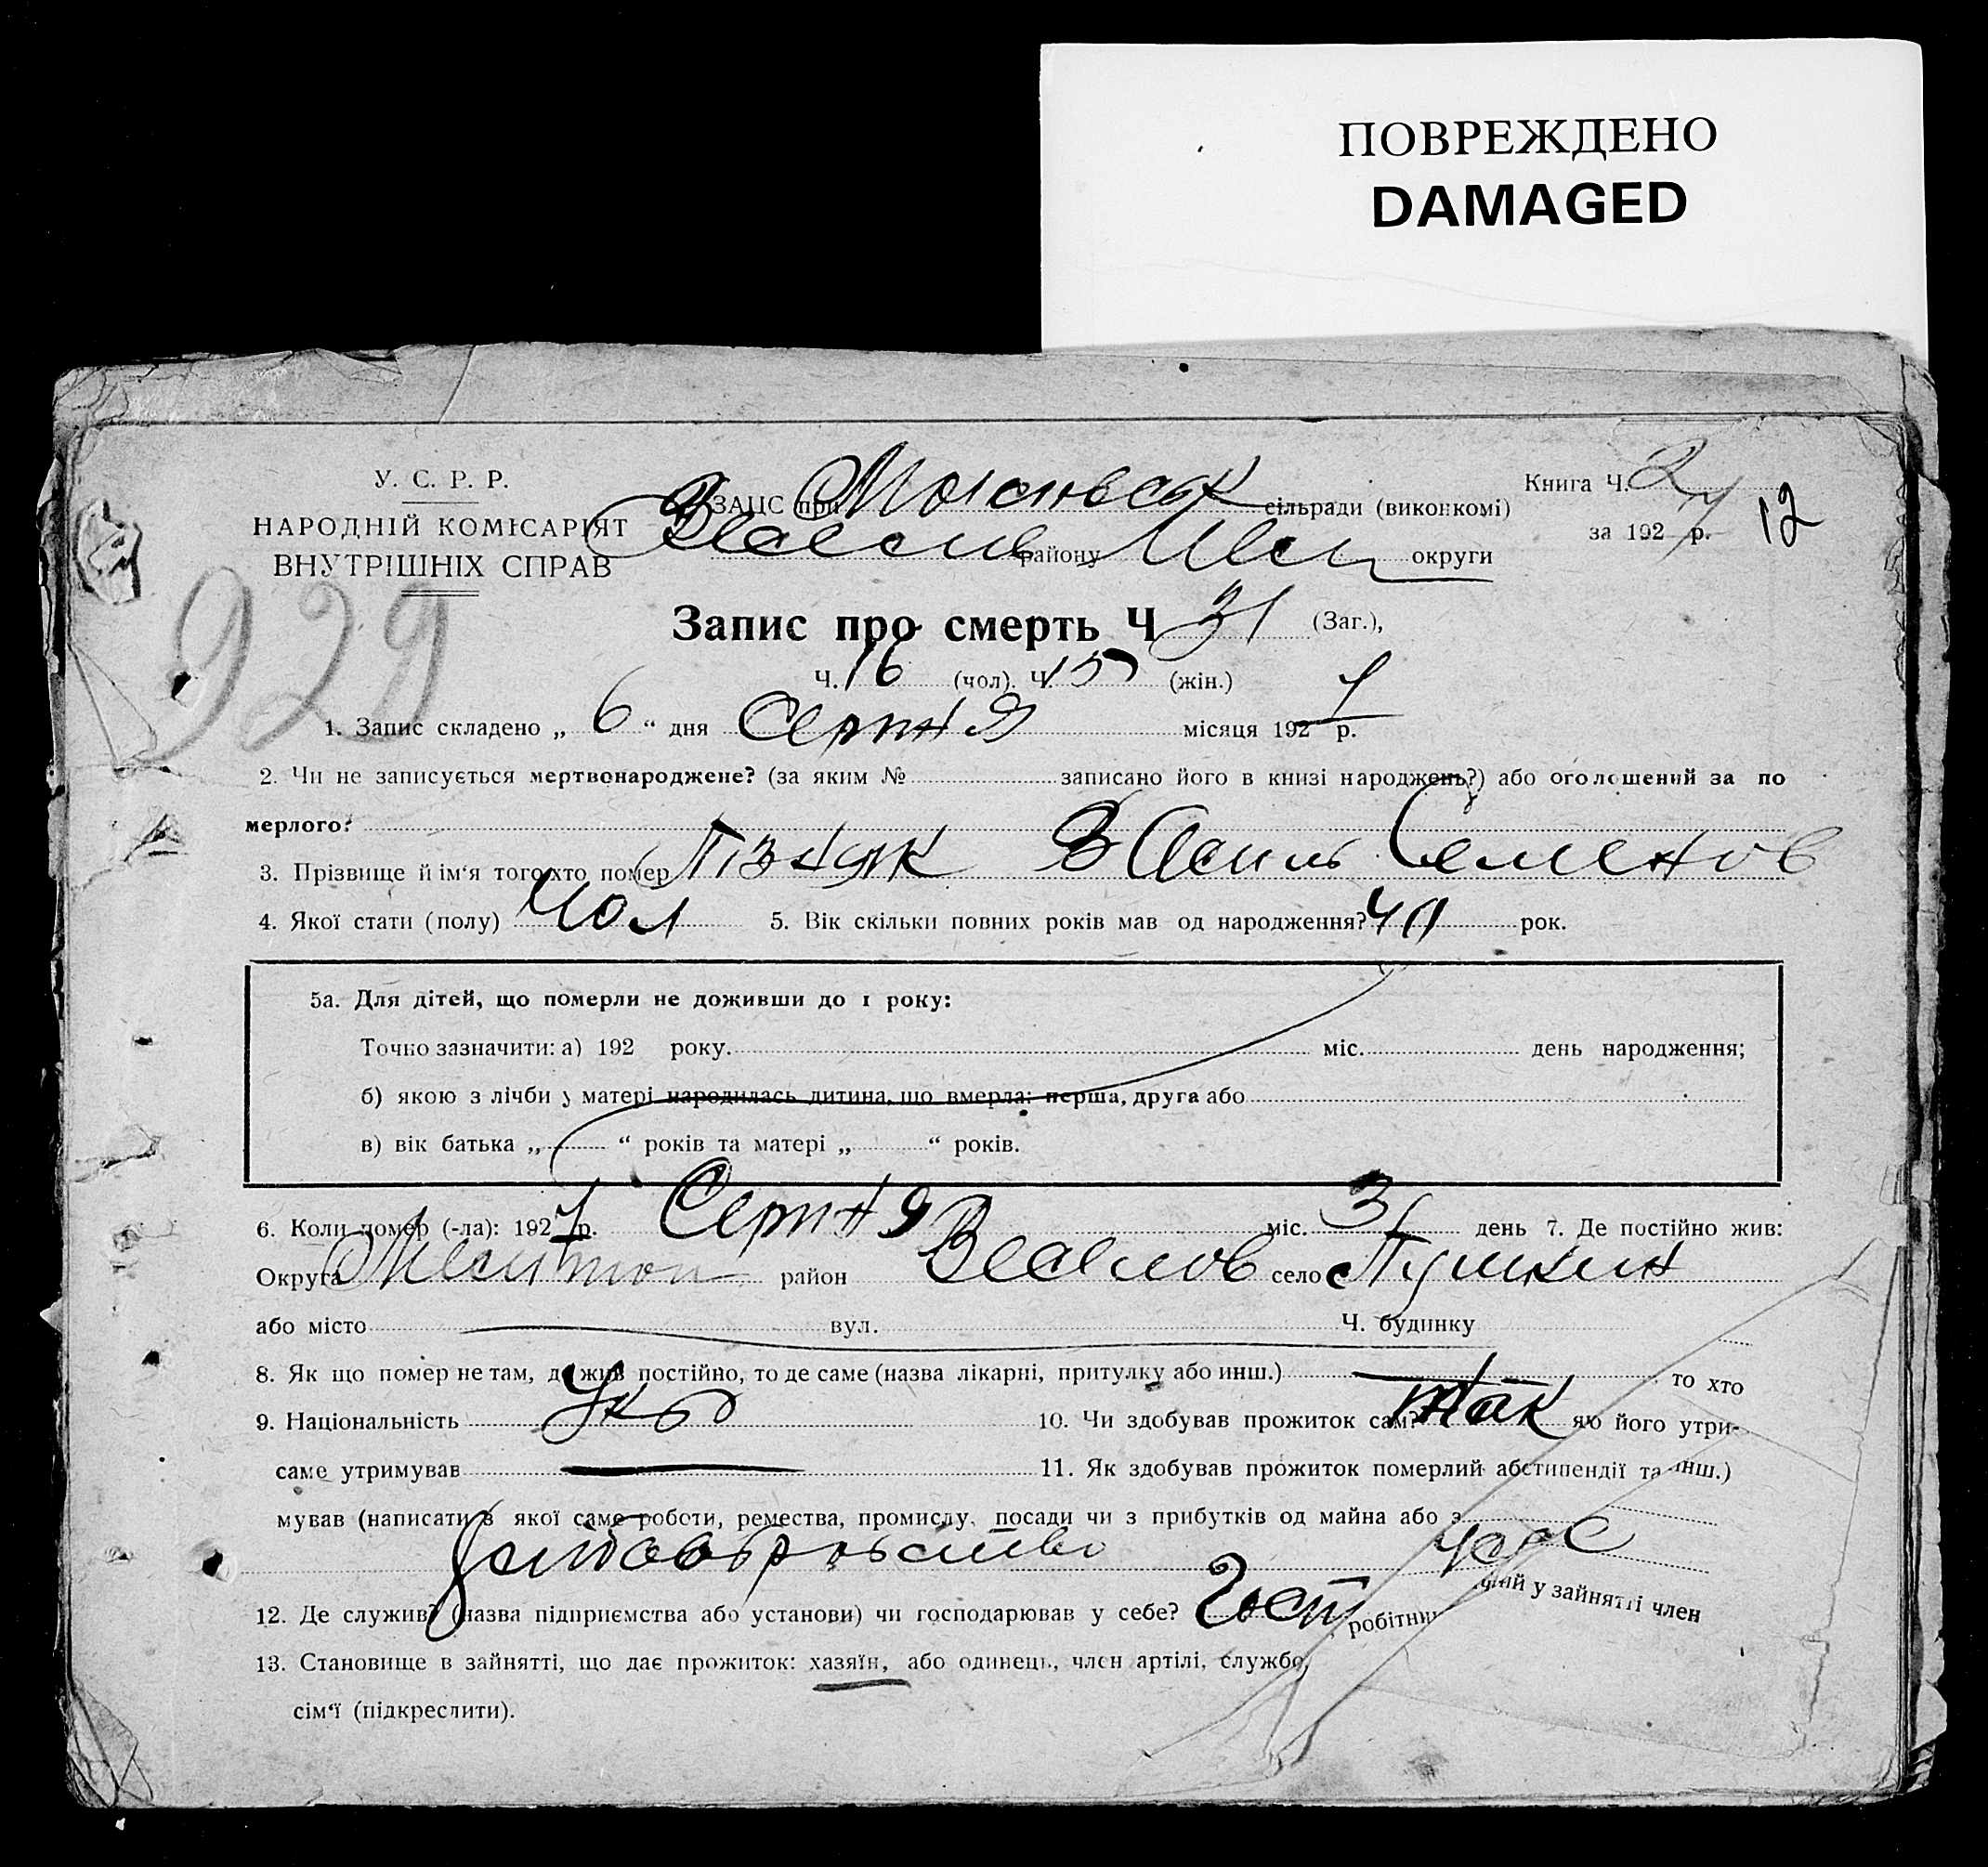 ПОВРЕЖДЕНО
DAMAGED
У. С. Р. Р.
НАРОДНІЙ КОМІСАРІЯТ
ВНУТРІШНІХ СПРАВ
ЗАЦС при сільради (виконкомі)
району округи
Книга Ч. 2
за 1927 р. 12
929
Запис про смерть Ч 31 (Заг.),
Ч. 16 (чол). Ч. 15 (жін.)
1. Запис складено „ 6 “ дня Серпня місяця 1927 р.
2. Чи не записується мертвонароджене? (за яким № записано його в книзі народжень?) або оголошений за по
мерлого?
3. Прізвище й ім'я того хто помер Пізняк Василь Семенов
4. Якої стати (полу) Чол 5. Вік скільки повних років мав од народження? рок.
5а. Для дітей, що померли не доживши до 1 року:
Точно зазначити: а) 192 року. міс. день народження;
б) якою з лічби у матері народилась дитина, що вмерла: перша, друга або
в) вік батька „ “ років та матері „ “ років.
6. Коли помер (-ла): 1927 р. Серпня міс. 3 день 7. Де постійно жив:
Округа Мелитоп район Веселов село Пушкин
або місто вул. Ч. будинку
8. Як що помер не там, де жив постійно, то де саме (назва лікарні, притулку або инш.) то хто
9. Національність Укр 10. Чи здобував прожиток сам? так його утри-
саме утримував 11. Як здобував прожиток померлий інш.)
мував (написати з якої саме роботи, ремества, промислу, посади чи з прибутків од майна або з стипендії та
12. Де служив? (назва підприємства або установи) чи господарював у себе? Госп
13. Становище в зайнятті, що дає прожиток: хазяїн, або одинець, член артілі, службо робітни у зайнятті член
сім'ї (підкреслити).